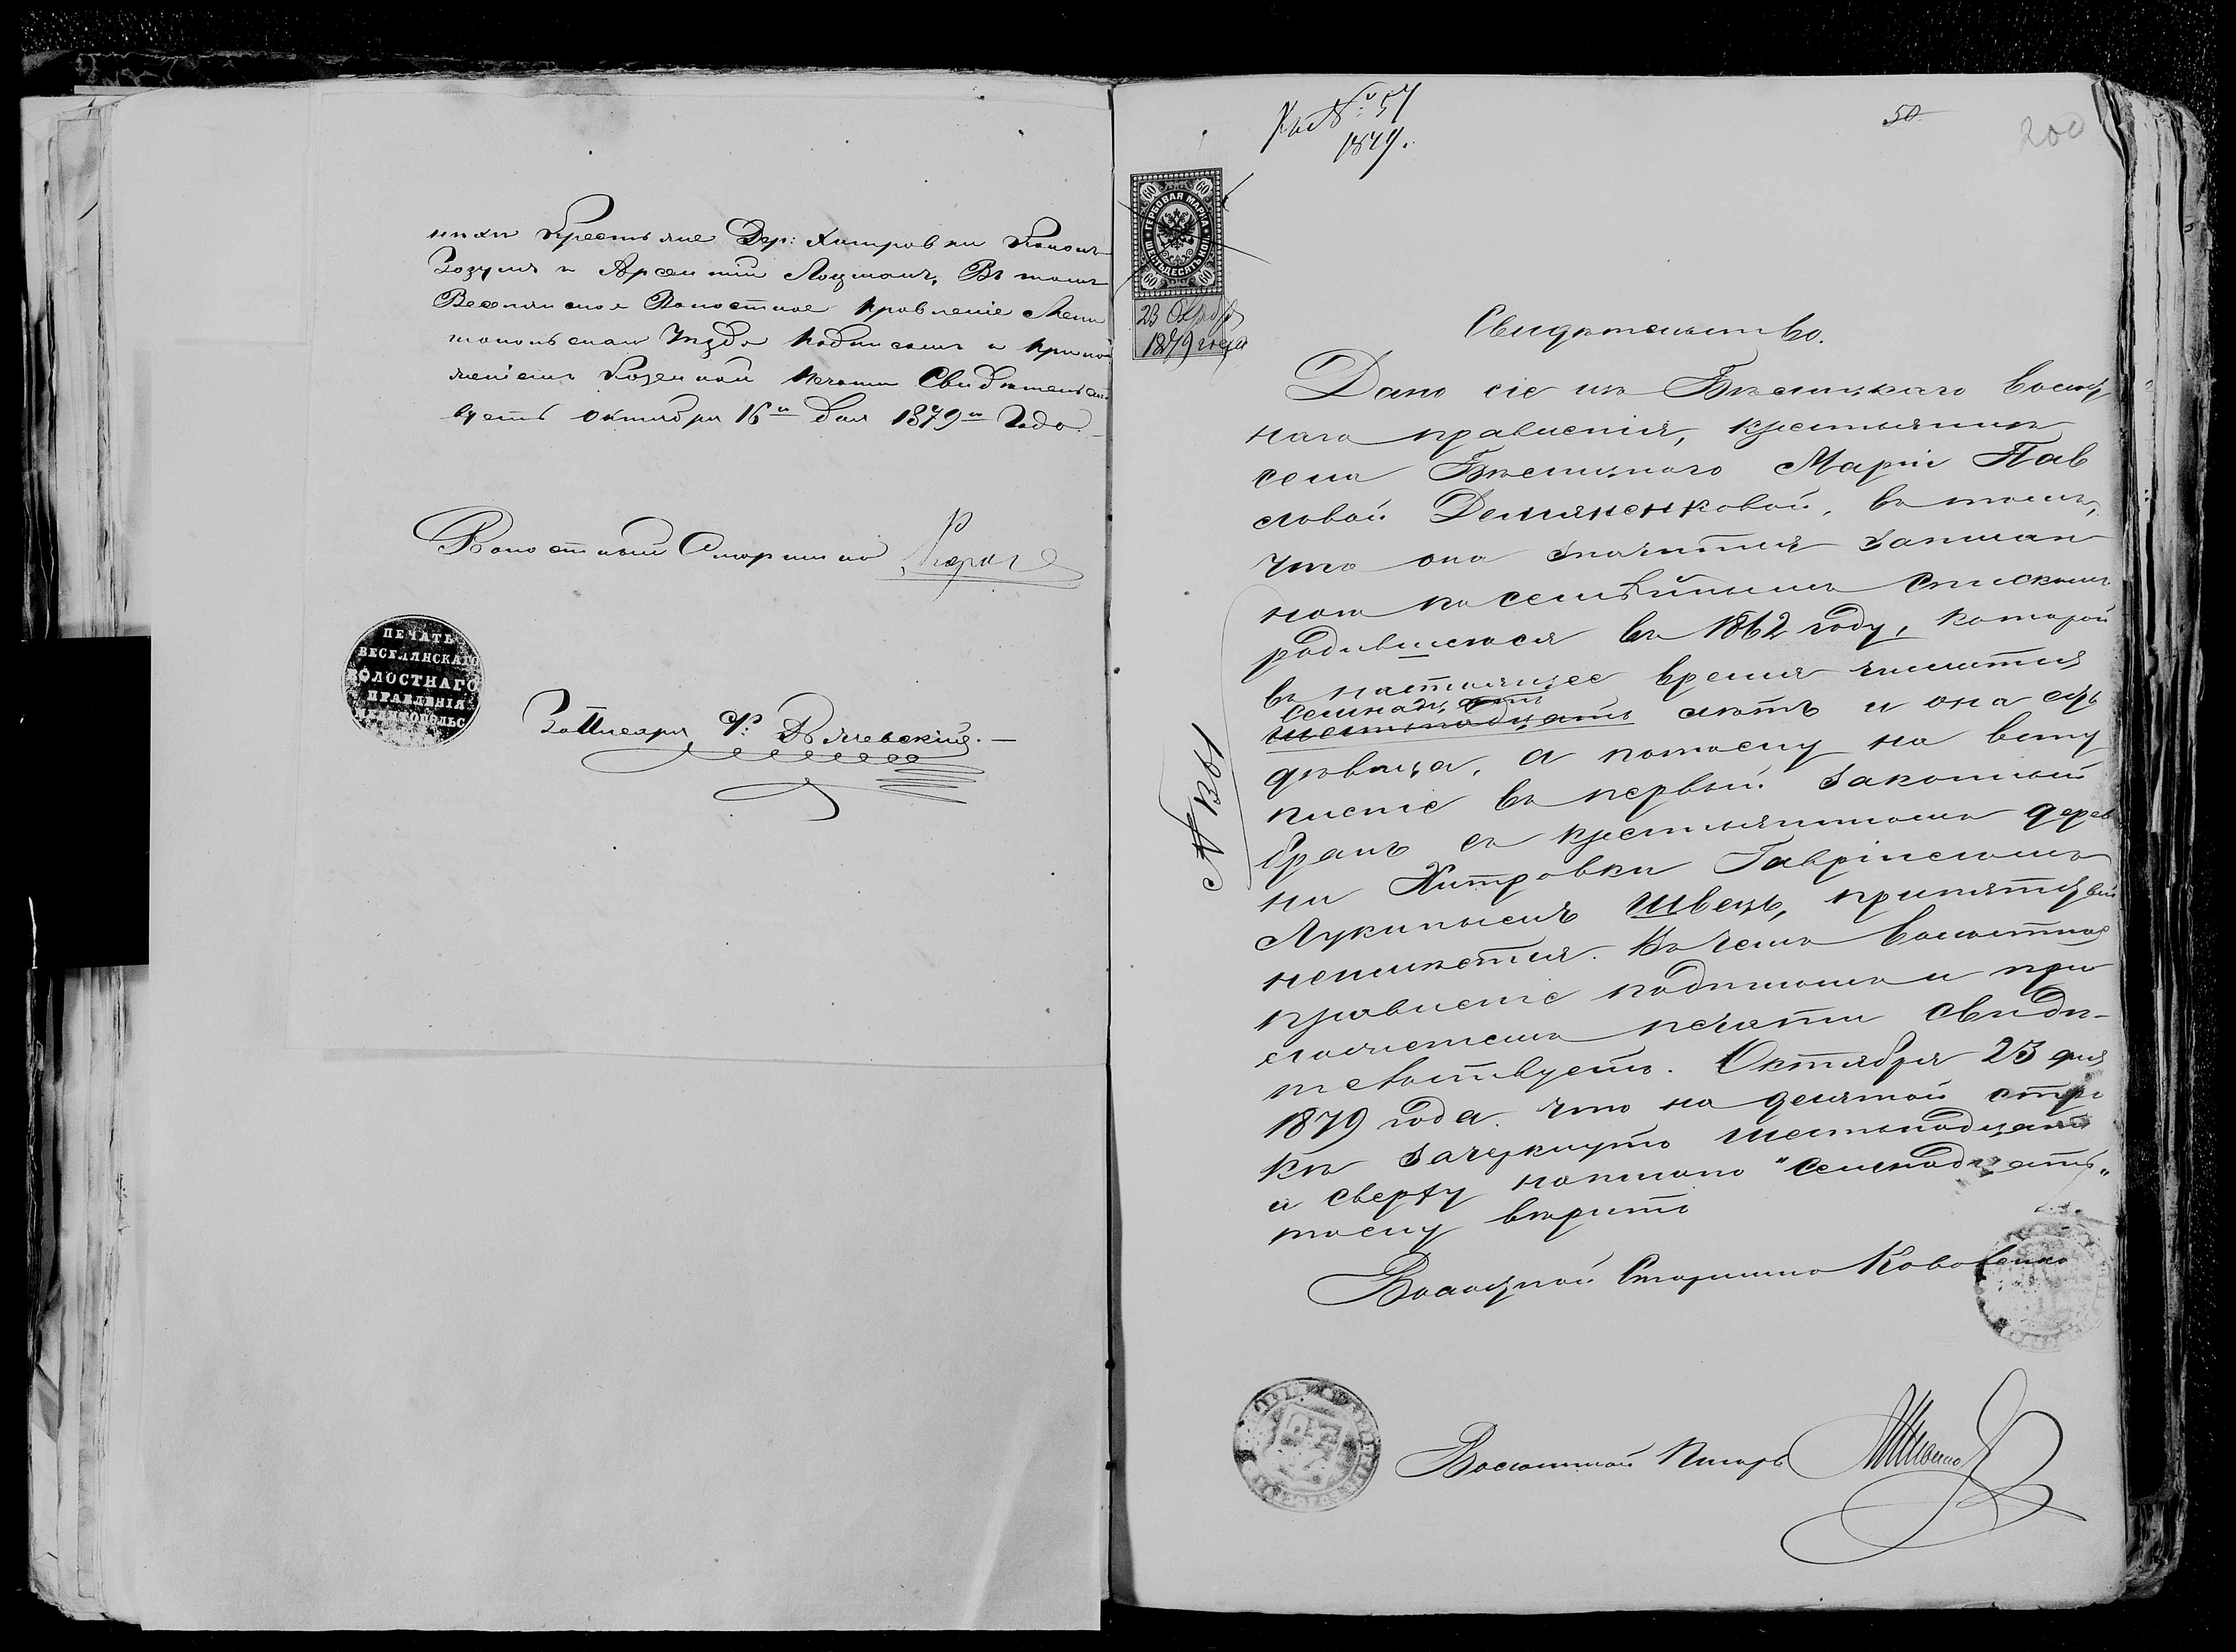 нихъ Крестьяне Дер: Хитровки Кононъ
Зозуля и Арсентій Лоцманъ, Въ томъ
Веселянское Волостное правленіе Мели
топольскаго Уѣзда подписомъ и прило
женіемъ Казенной печати Свидѣтельст
вуетъ октября 16го дня 1879го Года.
Волостный Старшина
ПЕЧАТЬ
ВЕСЕЛЯНСКАГО
ВОЛОСТНАГО
ПРАВЛЕНІЯ
МЕЛИТОПОЛЬС
За Писаря Ф:
Къ № 57
1879.
50
200
60 60
ГЕРБОВАЯ МАРКА ШЕСТЬДЕСЯТЪ КОП
60 60
23 Октяб
1879 года
Свидѣтельство.
Дано сіе изъ Бѣлицкаго Волост
наго правленія, крестьянкѣ
села Бѣлицкаго Маріи Пав
ловой Демяненковой, въ томъ,
что она значится записан
ною по семѣйнымъ спискамъ
родившеюся въ 1862 году, которой
въ настоящее время числится
семнадцать
шестьнадцать лѣтъ и она есть
дѣвица, а потому на всту
пленіе въ первый законный
бракъ съ крестьяниномъ дерев
ни Хитровки Гавріиломъ
Лукинымъ Швецъ, припятствій
неимѣется. Въ чемъ волостное
правленіе подписомъ и при
ложеніемъ печати свидѣ-
тельствуетъ. Октября 23 дня
1879 года. что на девятой стро
кѣ зачеркнуто шестьнадцать
и сверху написано "семнадцать"
тому вѣрить
№ 1301
Волостной Старшина Коваленко
Волостной Писарь